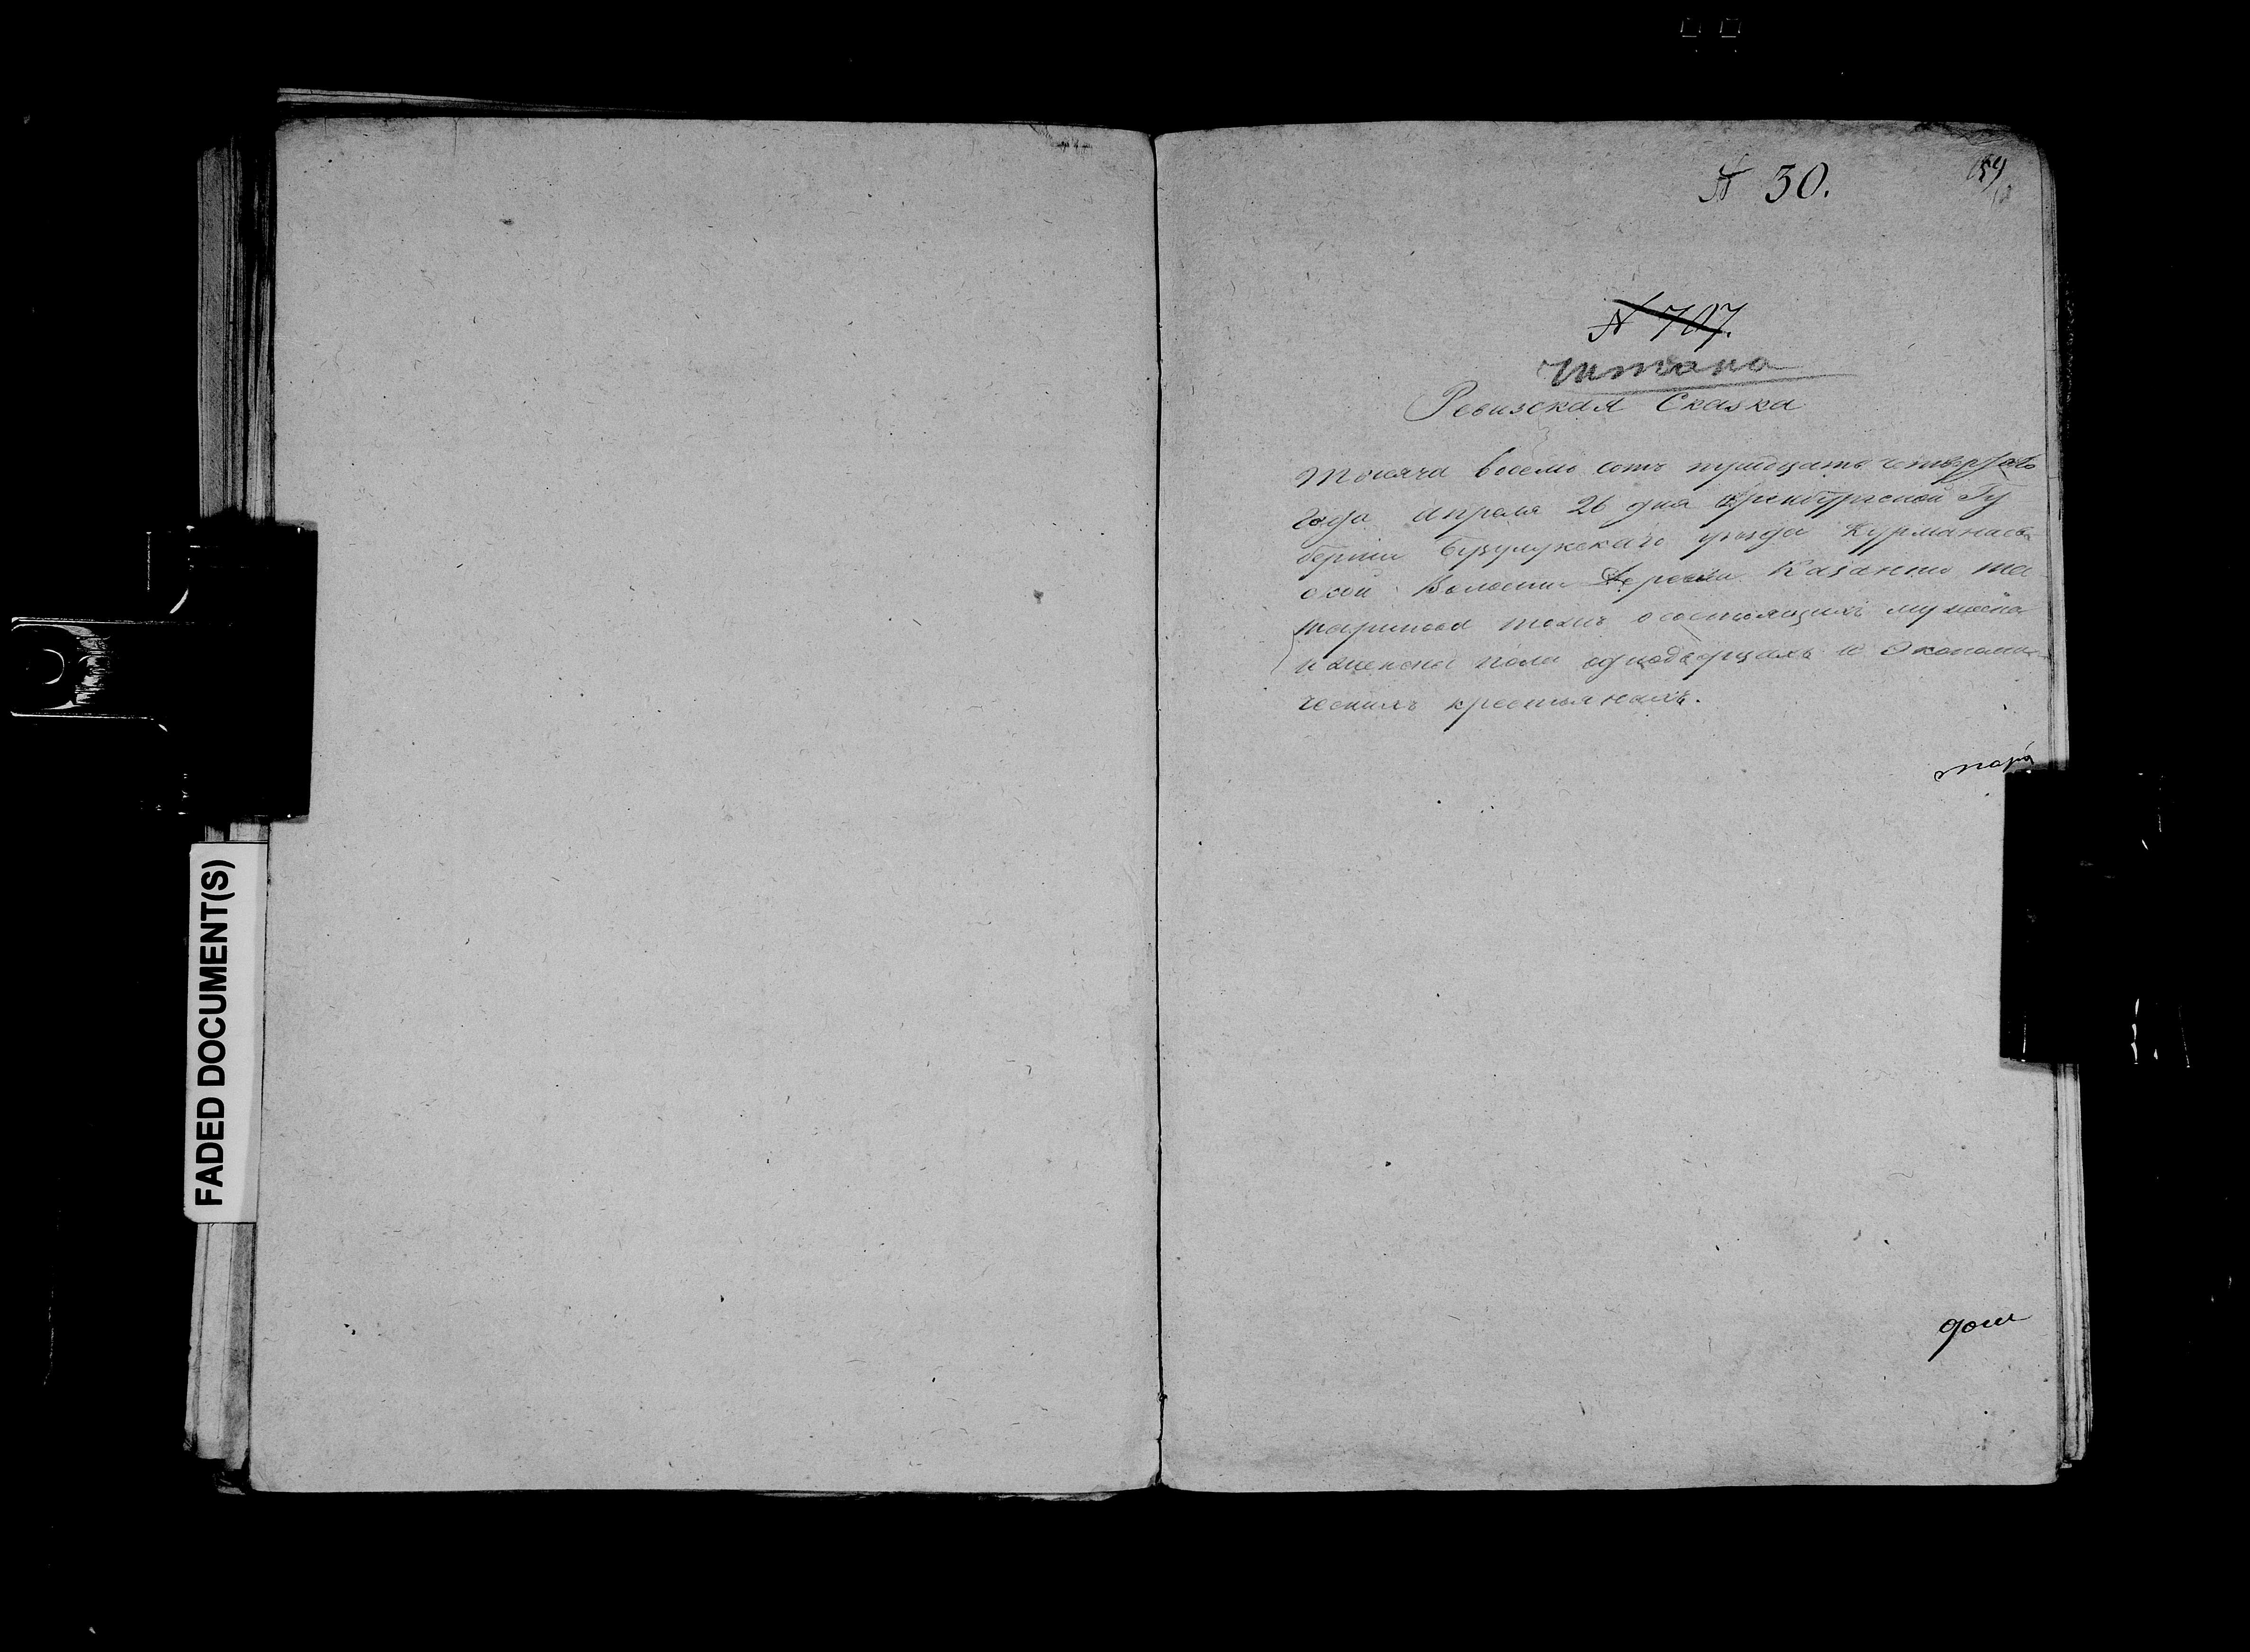 № 30.
159
№ 707.
читана
Ревизская Сказка
Тысяча восемь сотъ тридцать четвертаго
года апреля 26 дня Оренбургской Гу
берніи Бузулукскаго уезда Курманаев
ской Волости Деревни Казанки та
тариновa тожъ о состоящихъ мужеска
и женска пола однодворцахъ и Экономи-
ческихъ крестьянахъ.
FADED DOCUMENT(S)